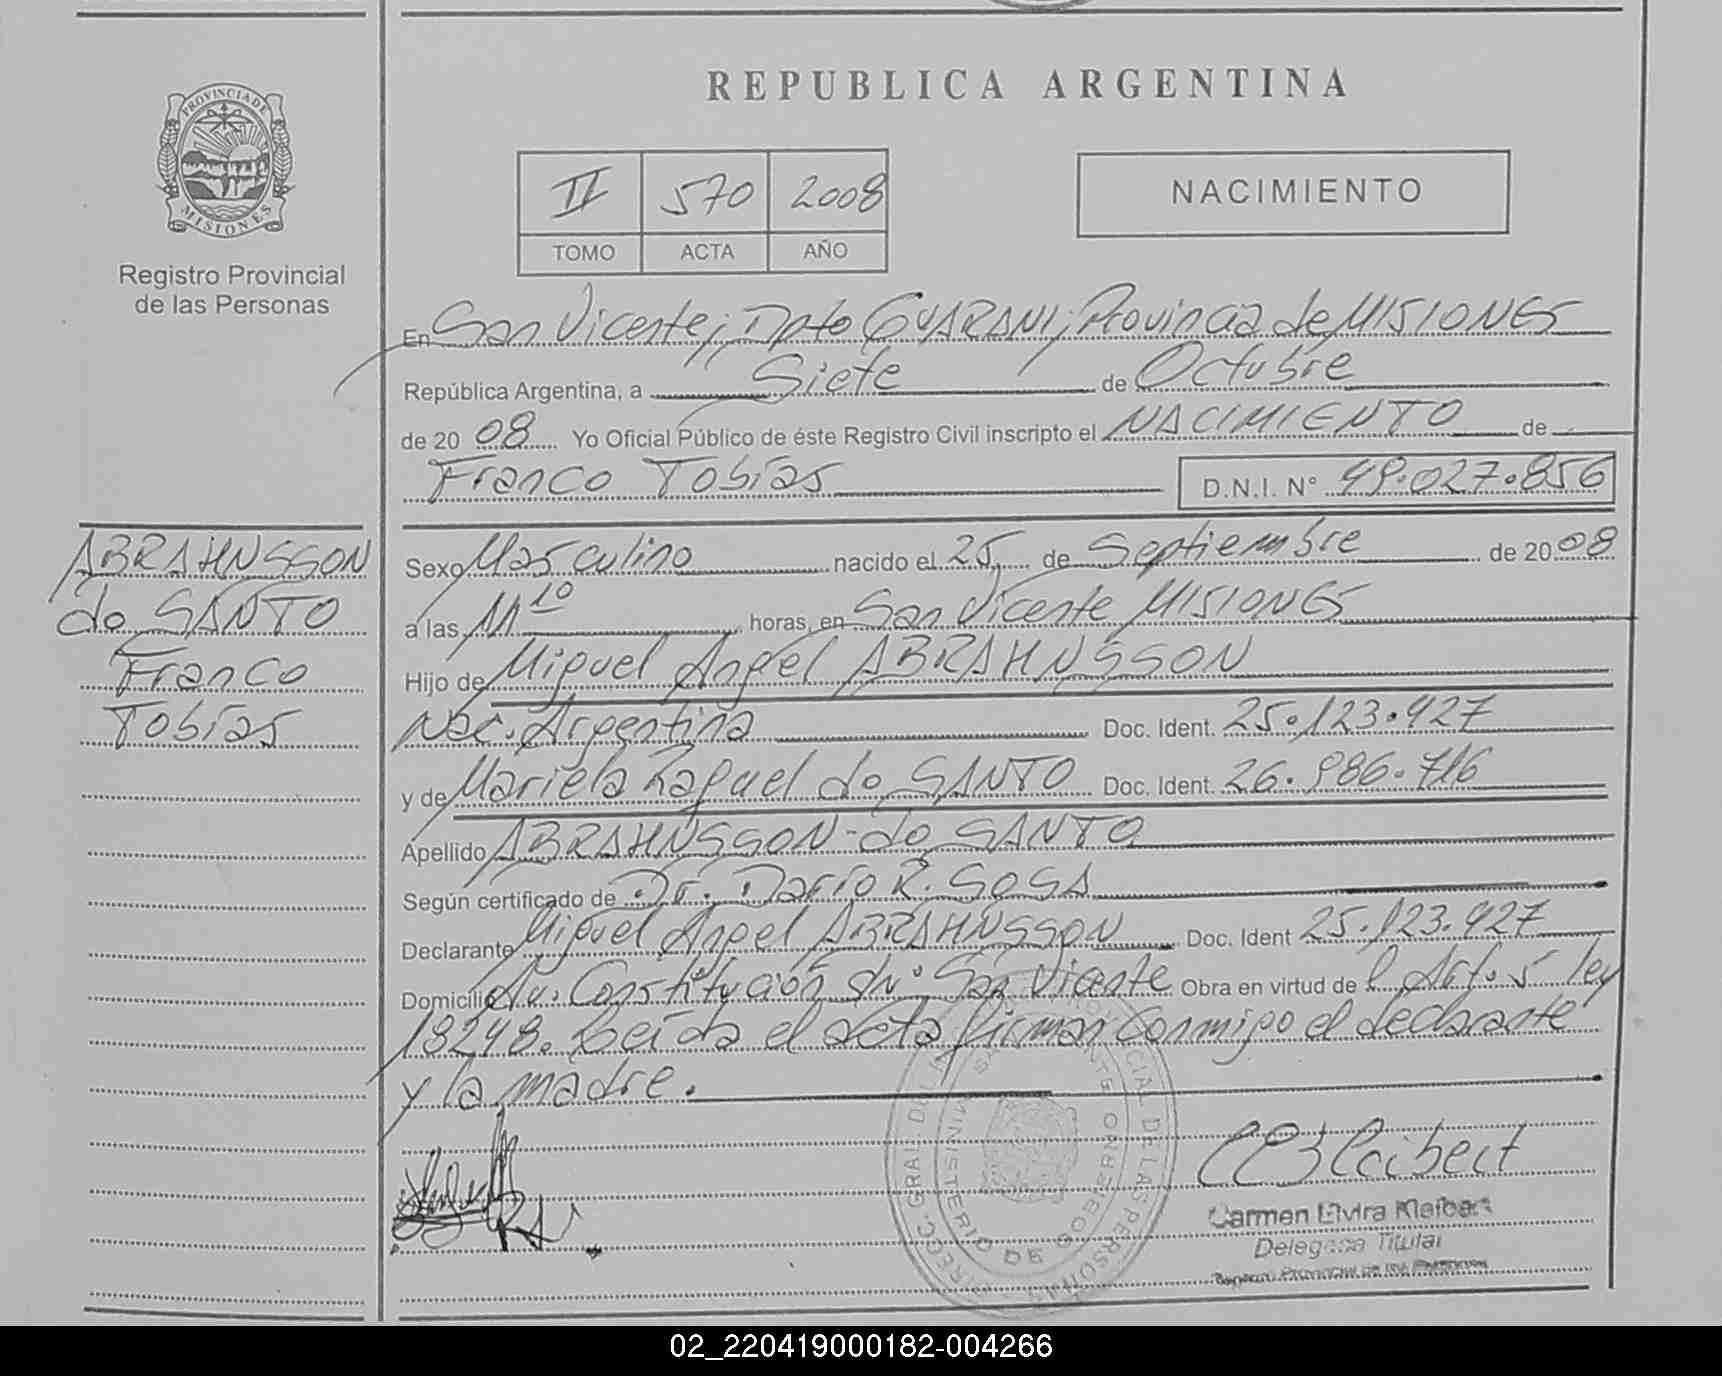 REPUBLICA ARGENTINA
PROVINCIA DE MISIONES
Registro Provincial
de las Personas
II 570 2008
TOMO ACTA AÑO
NACIMIENTO
En San Vicente; Dpto GUARANI; Provincia de MISIONES
República Argentina, a Siete de Octubre
de 2008 Yo Oficial Público de éste Registro Civil inscripto el NACIMIENTO de
Franco Tobías D.N.I. N° 49.027.856
ABRAHNSSON
do SANTO
Franco
Tobías
Sexo Masculino nacido el 25 de Septiembre de 2008
a las 11 10 horas, en San Vicente MISIONES
Hijo de Miguel Angel ABRAHNSSON
Nac. Argentina Doc. Ident. 25.123.427
y de Mariela Raquel do SANTO Doc. Ident. 26.986.716
Apellido ABRAHNSSON-do SANTO
Según certificado de Dr. Darío R. SOSA
Declarante Miguel Angel ABRAHNSSON Doc. Ident 25.123.427
Domicilio Av. Constitución s/n° San Vicente Obra en virtud de l Art. 5 ley
18248. Leída el acta firman conmigo el declarante
y la madre.
Carmen Elvira
Delegada Titular
Registro Provincial de las Personas
02_220419000182-004266